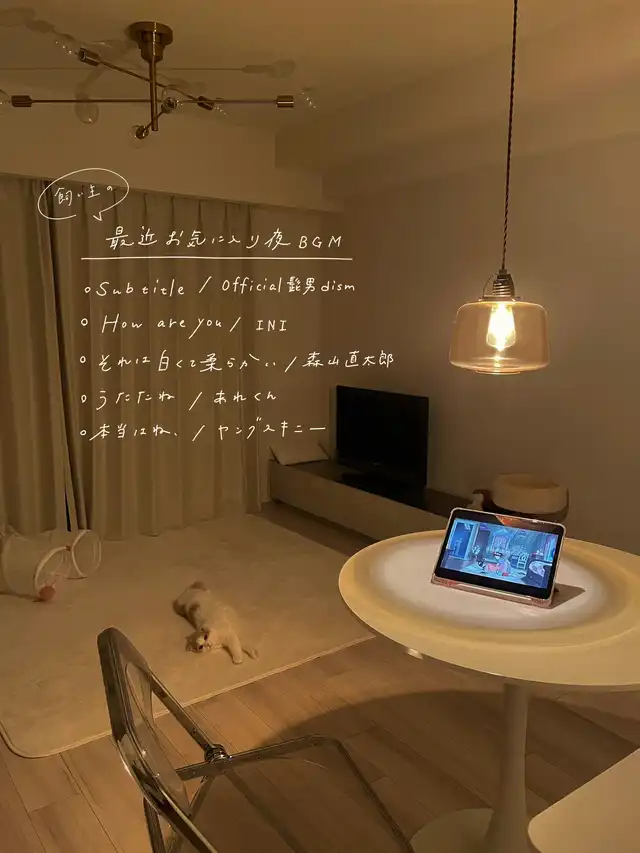 飼い主の
最近お気に入り夜BGM
○Subtitle / Official髭男dism
○How are you / INI
○それは白くて柔らかい / 森山直太郎
○うたたね / あれくん
○本当はね、/ ヤングスキニー